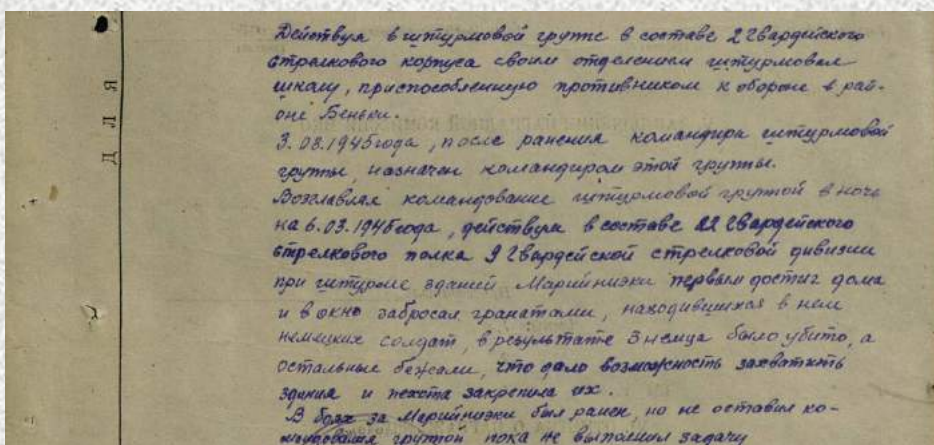 ДЛЯ
Действуя в штурмовой группе в составе 2 Гвардейского
стрелкового корпуса своим отделением штурмовал
школу, приспособленную противником к обороне в рай-
оне Беньки.
3.03.1945 года, после ранения командира штурмовой
группы, назначен командиром этой группы.
Возглавляя командование штурмовой группой в ночь
на 6.03.1945 года, действуя в составе 22 Гвардейского
стрелкового полка 9 Гвардейской стрелковой дивизии
при штурме зданий Марийнизки первым достиг дома
и в окно забросал гранатами, находившихся в нем
немецких солдат, в результате 3 немца было убито, а
остальные бежали, что дало возможность захватить
здания и пехота закрепила их.
В боях за Марийнизки был ранен, но не оставил ко-
мандования группой пока не выполнил задачу